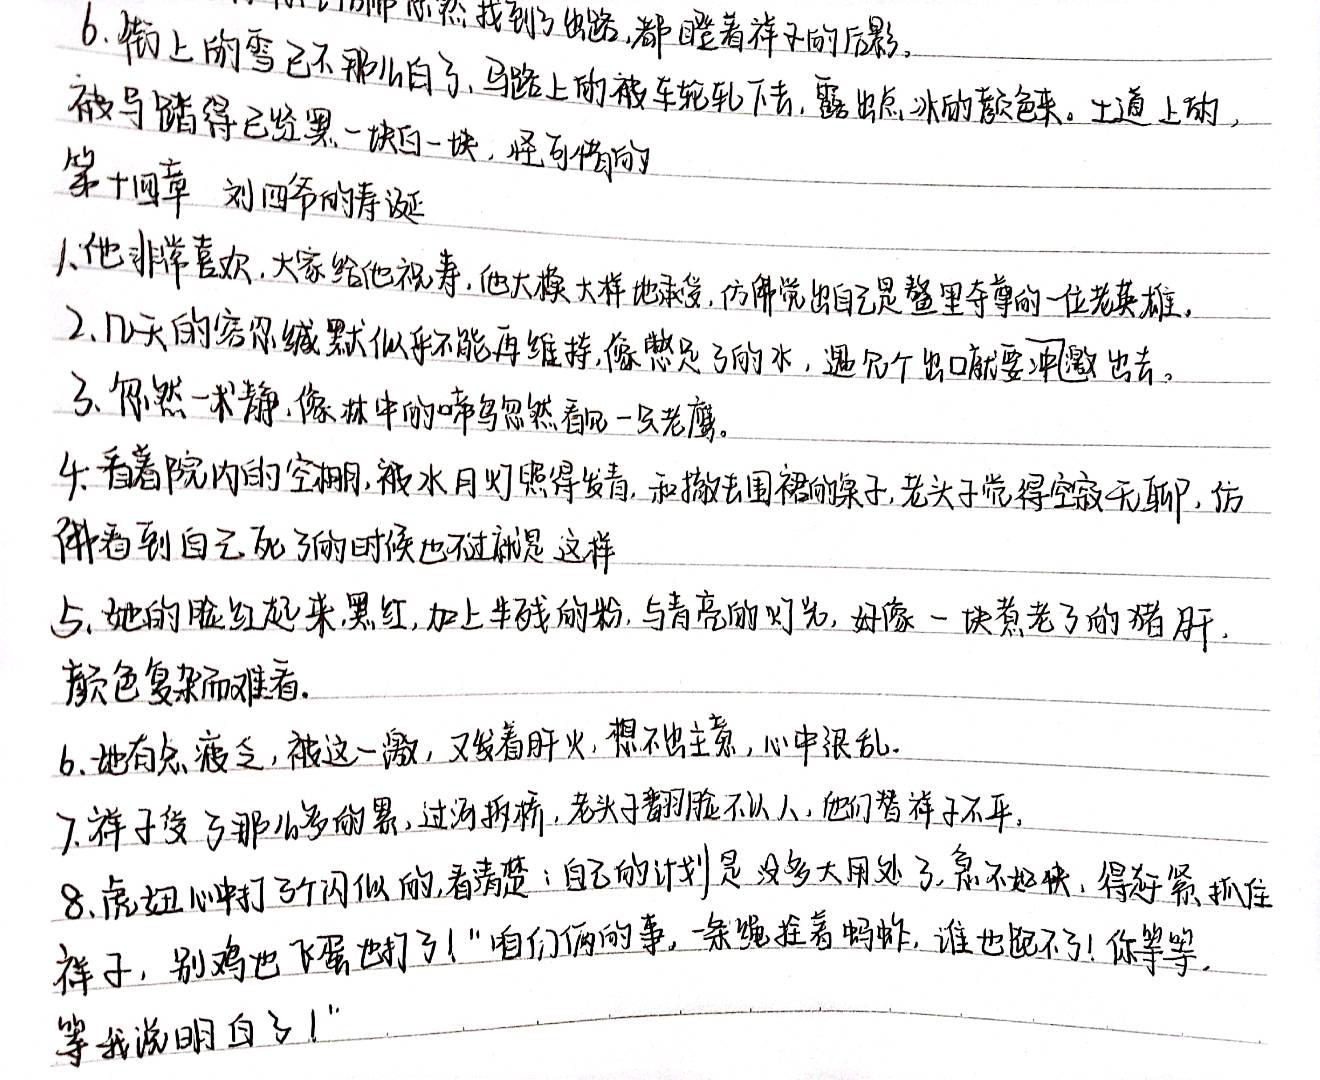 忽然找到了出路,都瞪着祥子的后影。
6.街上的雪已不那么白了,马路上的被车轮轧下去,露出点冰的颜色来。土道上的,
被马踏得已经黑一块白一块,怪可惜的
第十四章 刘四爷的寿诞
1.他非常喜欢,大家给他祝寿,他大模大样地承受,仿佛觉出自己是鳌里夺尊的一位老英雄。
2.几天的容忍缄默似乎不能再维持,像憋足了的水,遇见个出口就要冲激出去。
3.忽然一术静,像林中的啼鸟忽然看见一只老鹰。
4.看着院内的空棚,被水月灯照得发青,和撤去围裙的桌子,老头子觉得空寂无聊,仿
佛看到自己死了的时候也不过就是这样
5.她的脸红起来,黑红,加上半残的粉,与青亮的灯光,好像一块煮老了的猪肝,
颜色复杂而难看.
6.她有点疲乏,被这一激,又发着肝火,想不出主意,心中很乱.
7.祥子受了那么多的累,过河拆桥,老头子翻脸不认人,他们替祥子不平,
8.虎妞心中打了个闪似的,看清楚:自己的计划是没多大用处了,急不如快,得赶紧抓住
祥子,别鸡也飞蛋也打了!"咱们俩的事,一条绳拴着蚂蚱,谁也跑不了!你等等,
等我说明白了!"